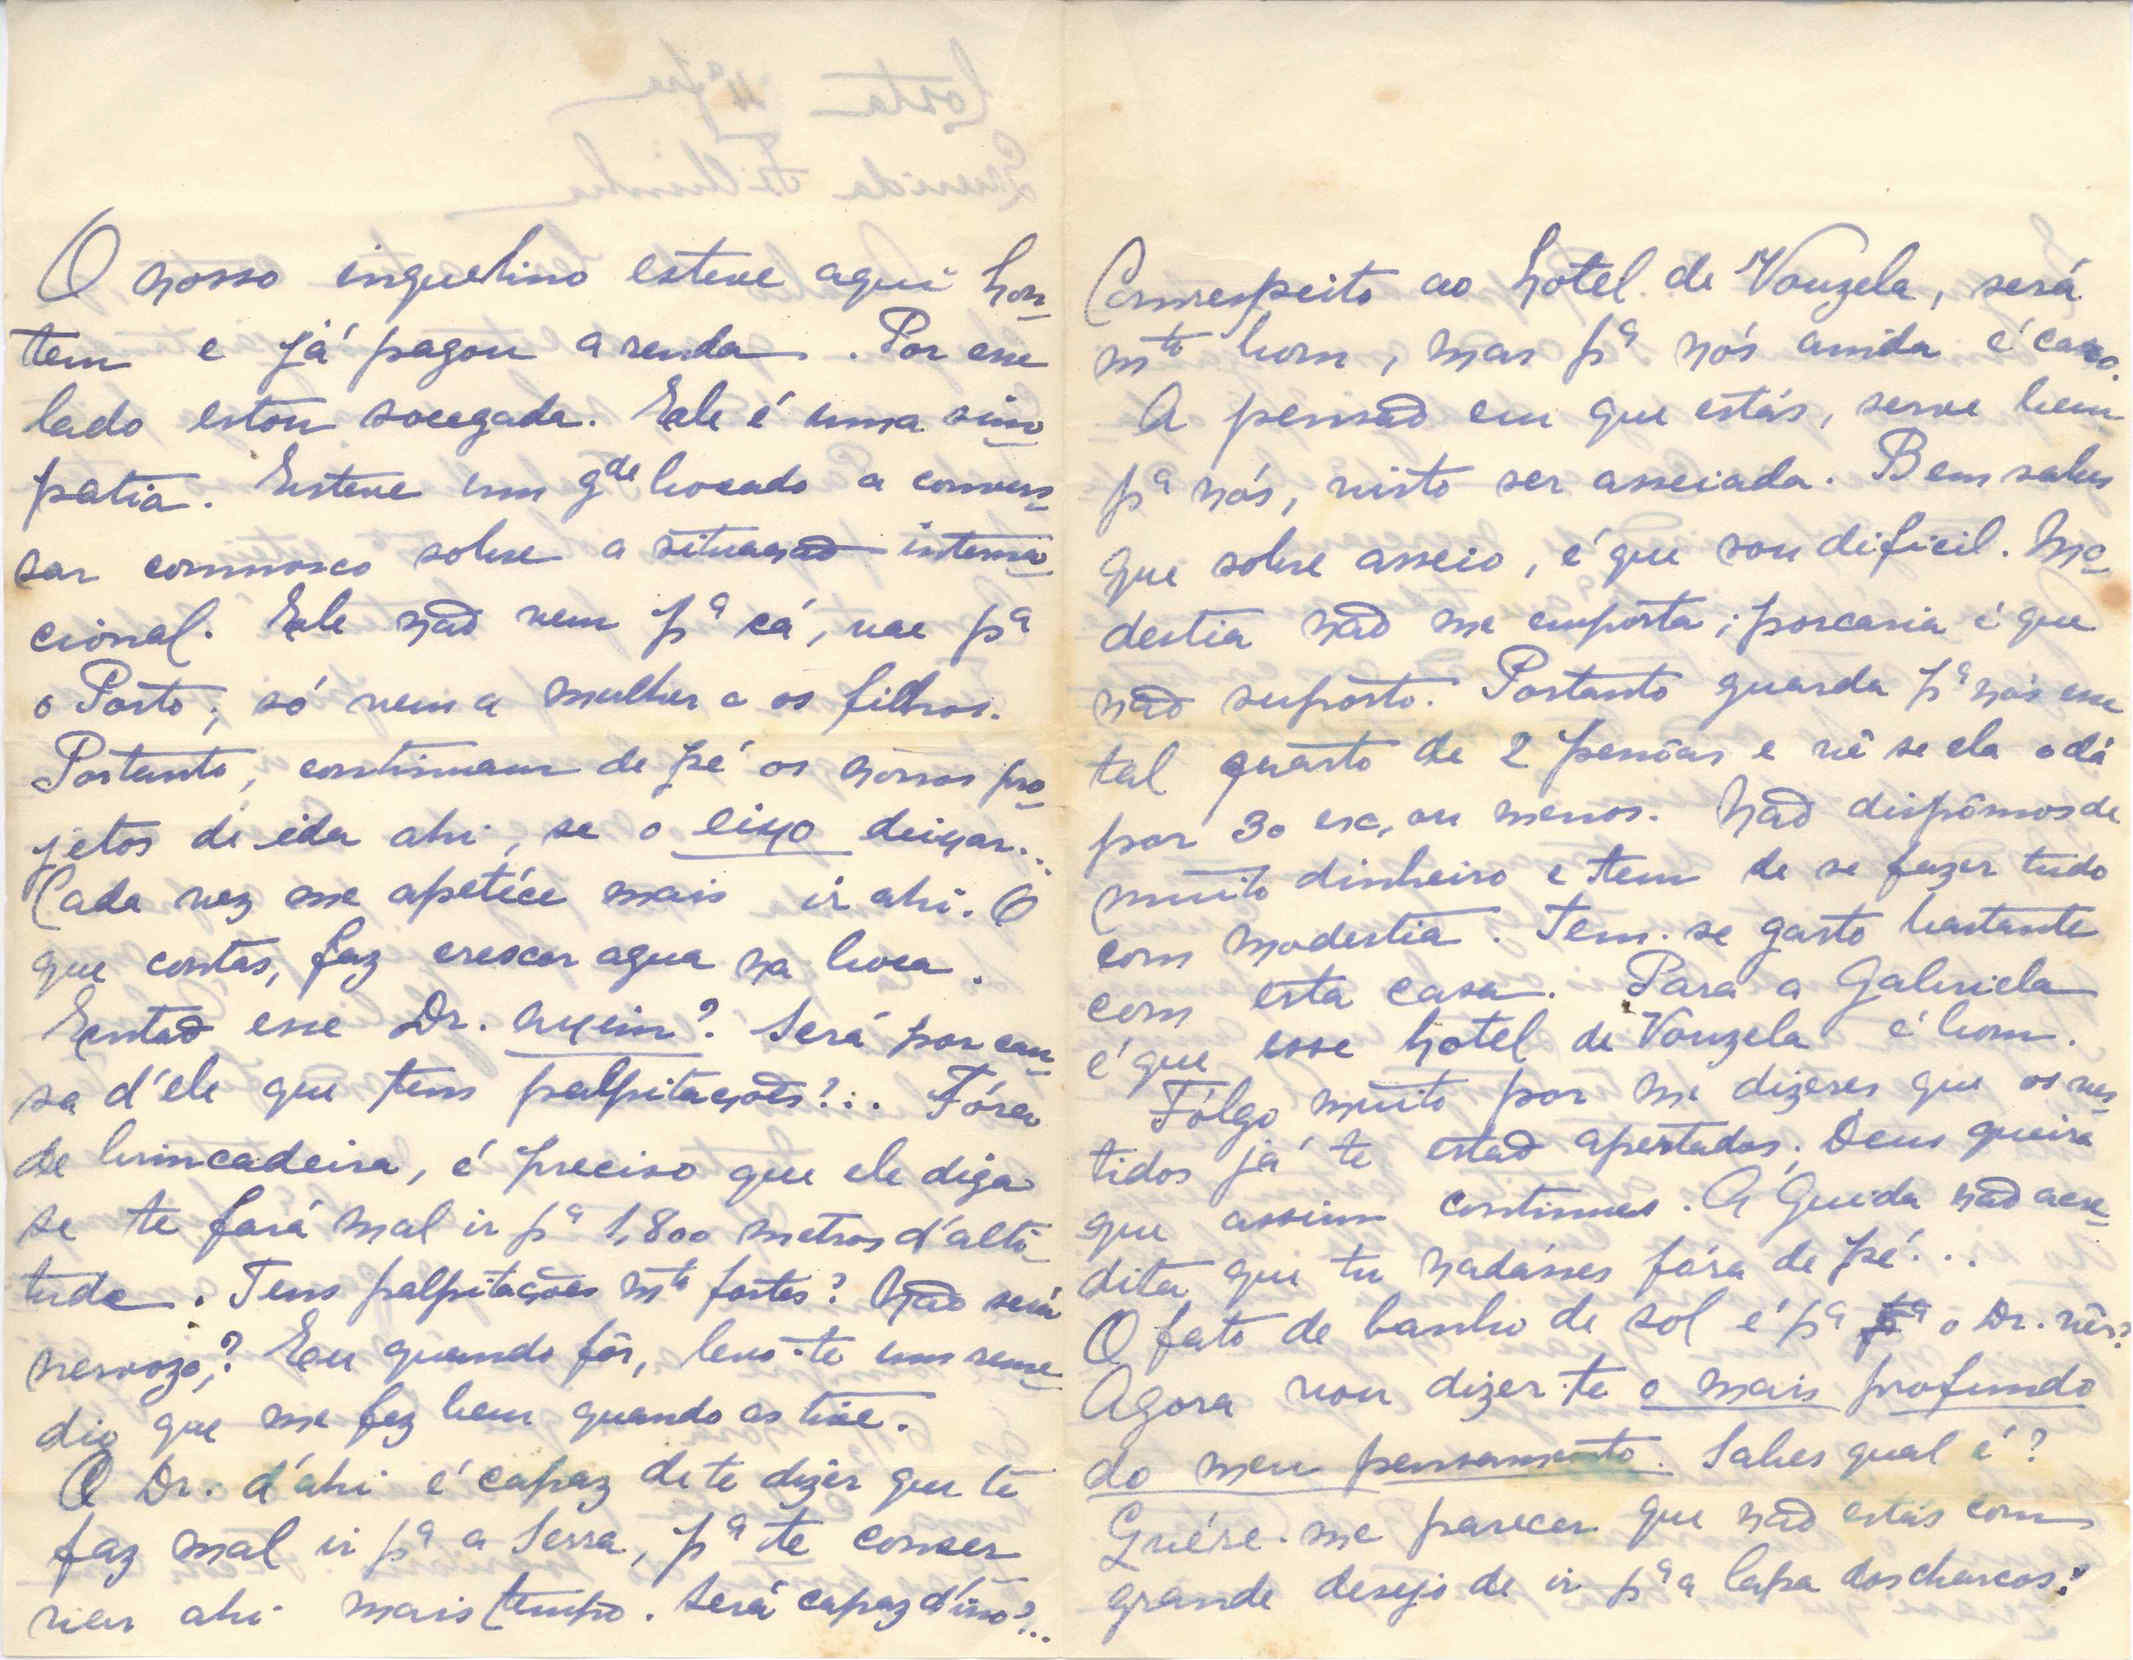 O nosso inquelino esteve aqui hon-
tem e já pagou a renda. Por esse
lado estou socegada. Ele é uma sim-
patia. Esteve um gde bocado a conver-
sar comnosco sobre a situação interna-
cional. Ele não vem pª cá, vae pª
o Porto; só vem a mulher e os filhos.
Portanto, continuam de pé os nossos pro-
jetos de ida ahi, se o eixo deixar...
Cada vez me apetéce mais ir ahi. O
que contas, faz crescer agua na boca.
Então esse Dr. auxim? Será por cau-
sa d'ele que tens palpitações?... Fóra
de brincadeira, é preciso que ele diga
se te fará mal ir pª 1,800 metros d'alti-
tude. Tens palpitações mto fortes? Não será
nervozo,? Eu quando fôr, levo-te um reme-
dio que me fez bem quando as tive.
O Dr. d'ahi é capaz de te dizer que te
faz mal ir pª a Serra, pª te conser-
var ahi mais tempo. Será capaz d'isso?...
Comrespeito ao hotel de Vouzela, será
mto bom, mas pª nós ainda é caro.
A pensão em que estás, serve bem
pª nós, visto ser asseiada. Bem sabes
que sobre asseio, é que sou dificil. Mo-
destia não me emporta; porcaria é que
não suporto. Portanto guarda pª nós esse
tal quarto de 2 pensôas e vê se ela o dá
por 30 esc, ou menos. Não dispômos de
muito dinheiro e tem de se fazer tudo
com modestia. Tem-se gasto bastante
com esta casa. Para a Gabriela
é que esse hotel de Vouzela é bom.
Fólgo muito por me dizeres que os ves-
tidos já te estão apertados; Deus queira
que assim continues. A Guida não acre-
dita que tu nadásses fóra de pé...
O fato de banho de sol é pª pª o Dr. vêr?
Agora vou dizer-te o mais profundo
do meu pensamento. Sabes qual é?
Quére-me parecer que não estás com
grande desejo de ir pª a lapa dos charcos!
Costa 4ª fra
Querida Filhinha